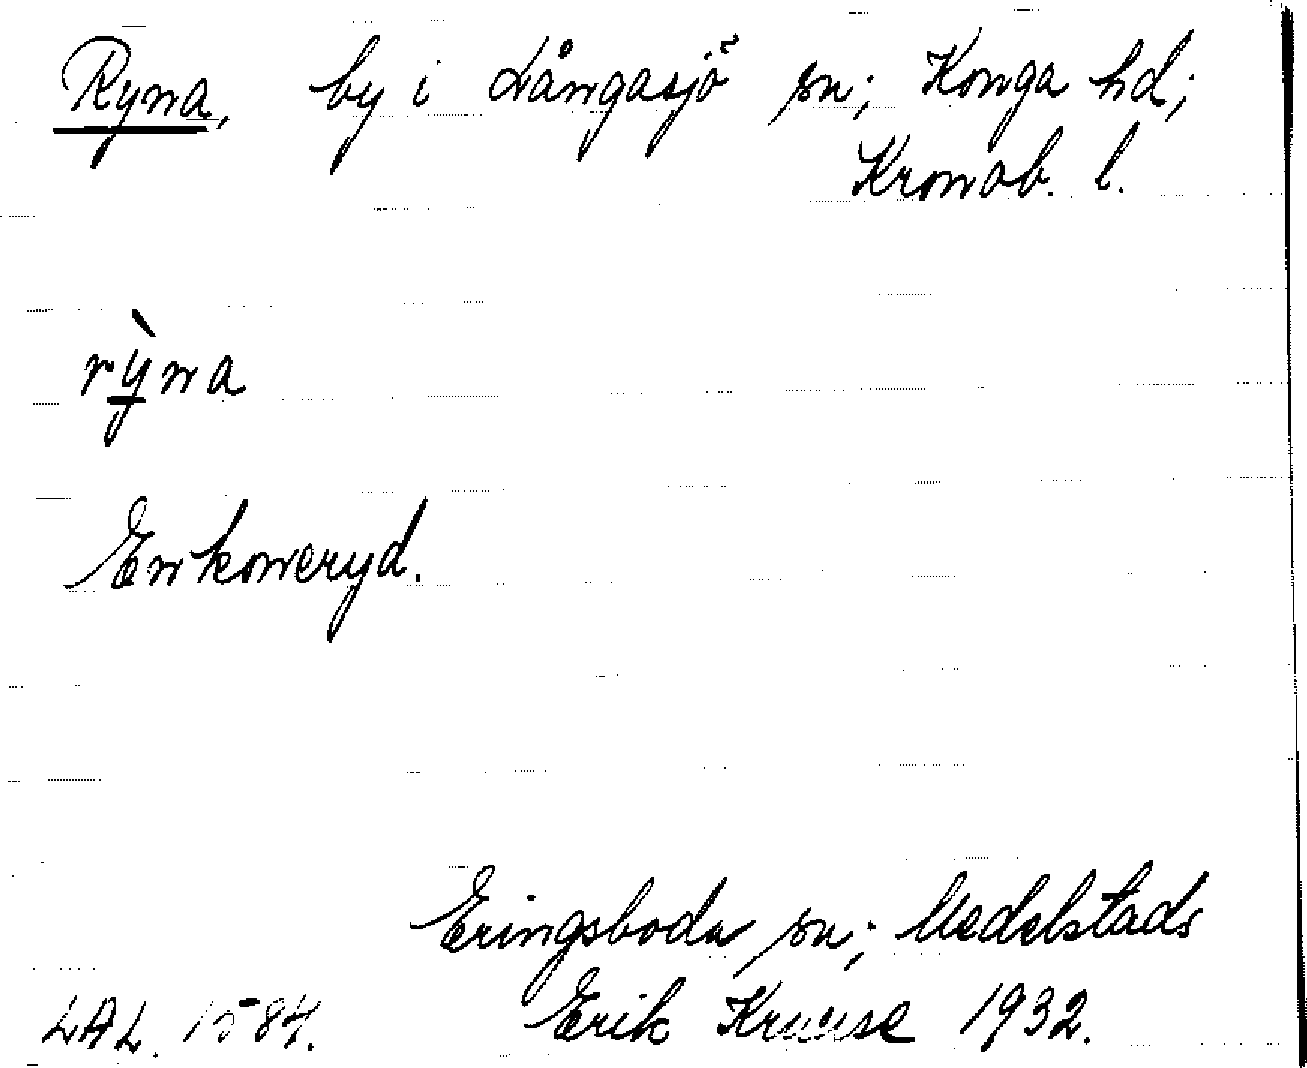 Ryna, by i Långasjö sn; Konga hd;
Kronob. l.
rỳna
Enkoneryd.
Eringsboda sn; Medelstads
LAL. 1584. Erik Krause 1932.